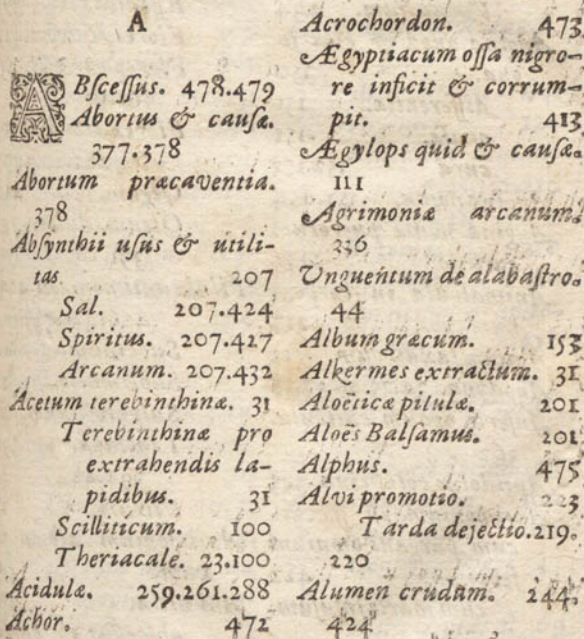 A
ABſceſſus. 478.479
Abortus & cauſæ.
377.378
Abortum præcaventia.
378
Abſynthii uſus & utili-
tas 207
Sal. 207.424
Spiritus. 207.427
Arcanum. 207.432
Acetum terebinthinæ. 31
Terebinthinæ pro
extrahendis la-
pidibus. 31
Scilliticum. 100
Theriacale. 23.100
Acidulæ. 259.261.288
Achor. 472
Acrochordon. 473
Ægyptiacum oſſa nigro-
re inficit & corrum-
pit. 413
Ægylops quid & cauſa.
111
Agrimoniæ arcanum.
336
Unguentum de alabaſtro.
44
Album græcum. 153
Alkermes extractum. 31
Aloëticæ pilulæ. 201
Aloës Balſamus. 201
Alphus. 475
Alvi promotio. 223
Tarda dejectio. 219.
220
Alumen crudum. 244.
424